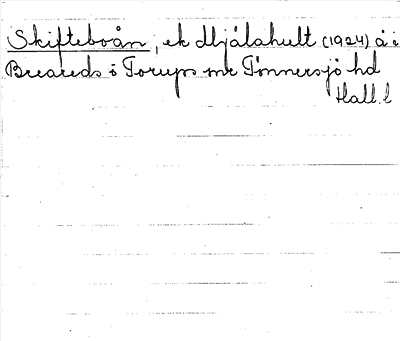 Skifteboån, ek Mjälahult (1924) å i
Breareds o Torups snr Tönnersjö hd
Hall. l